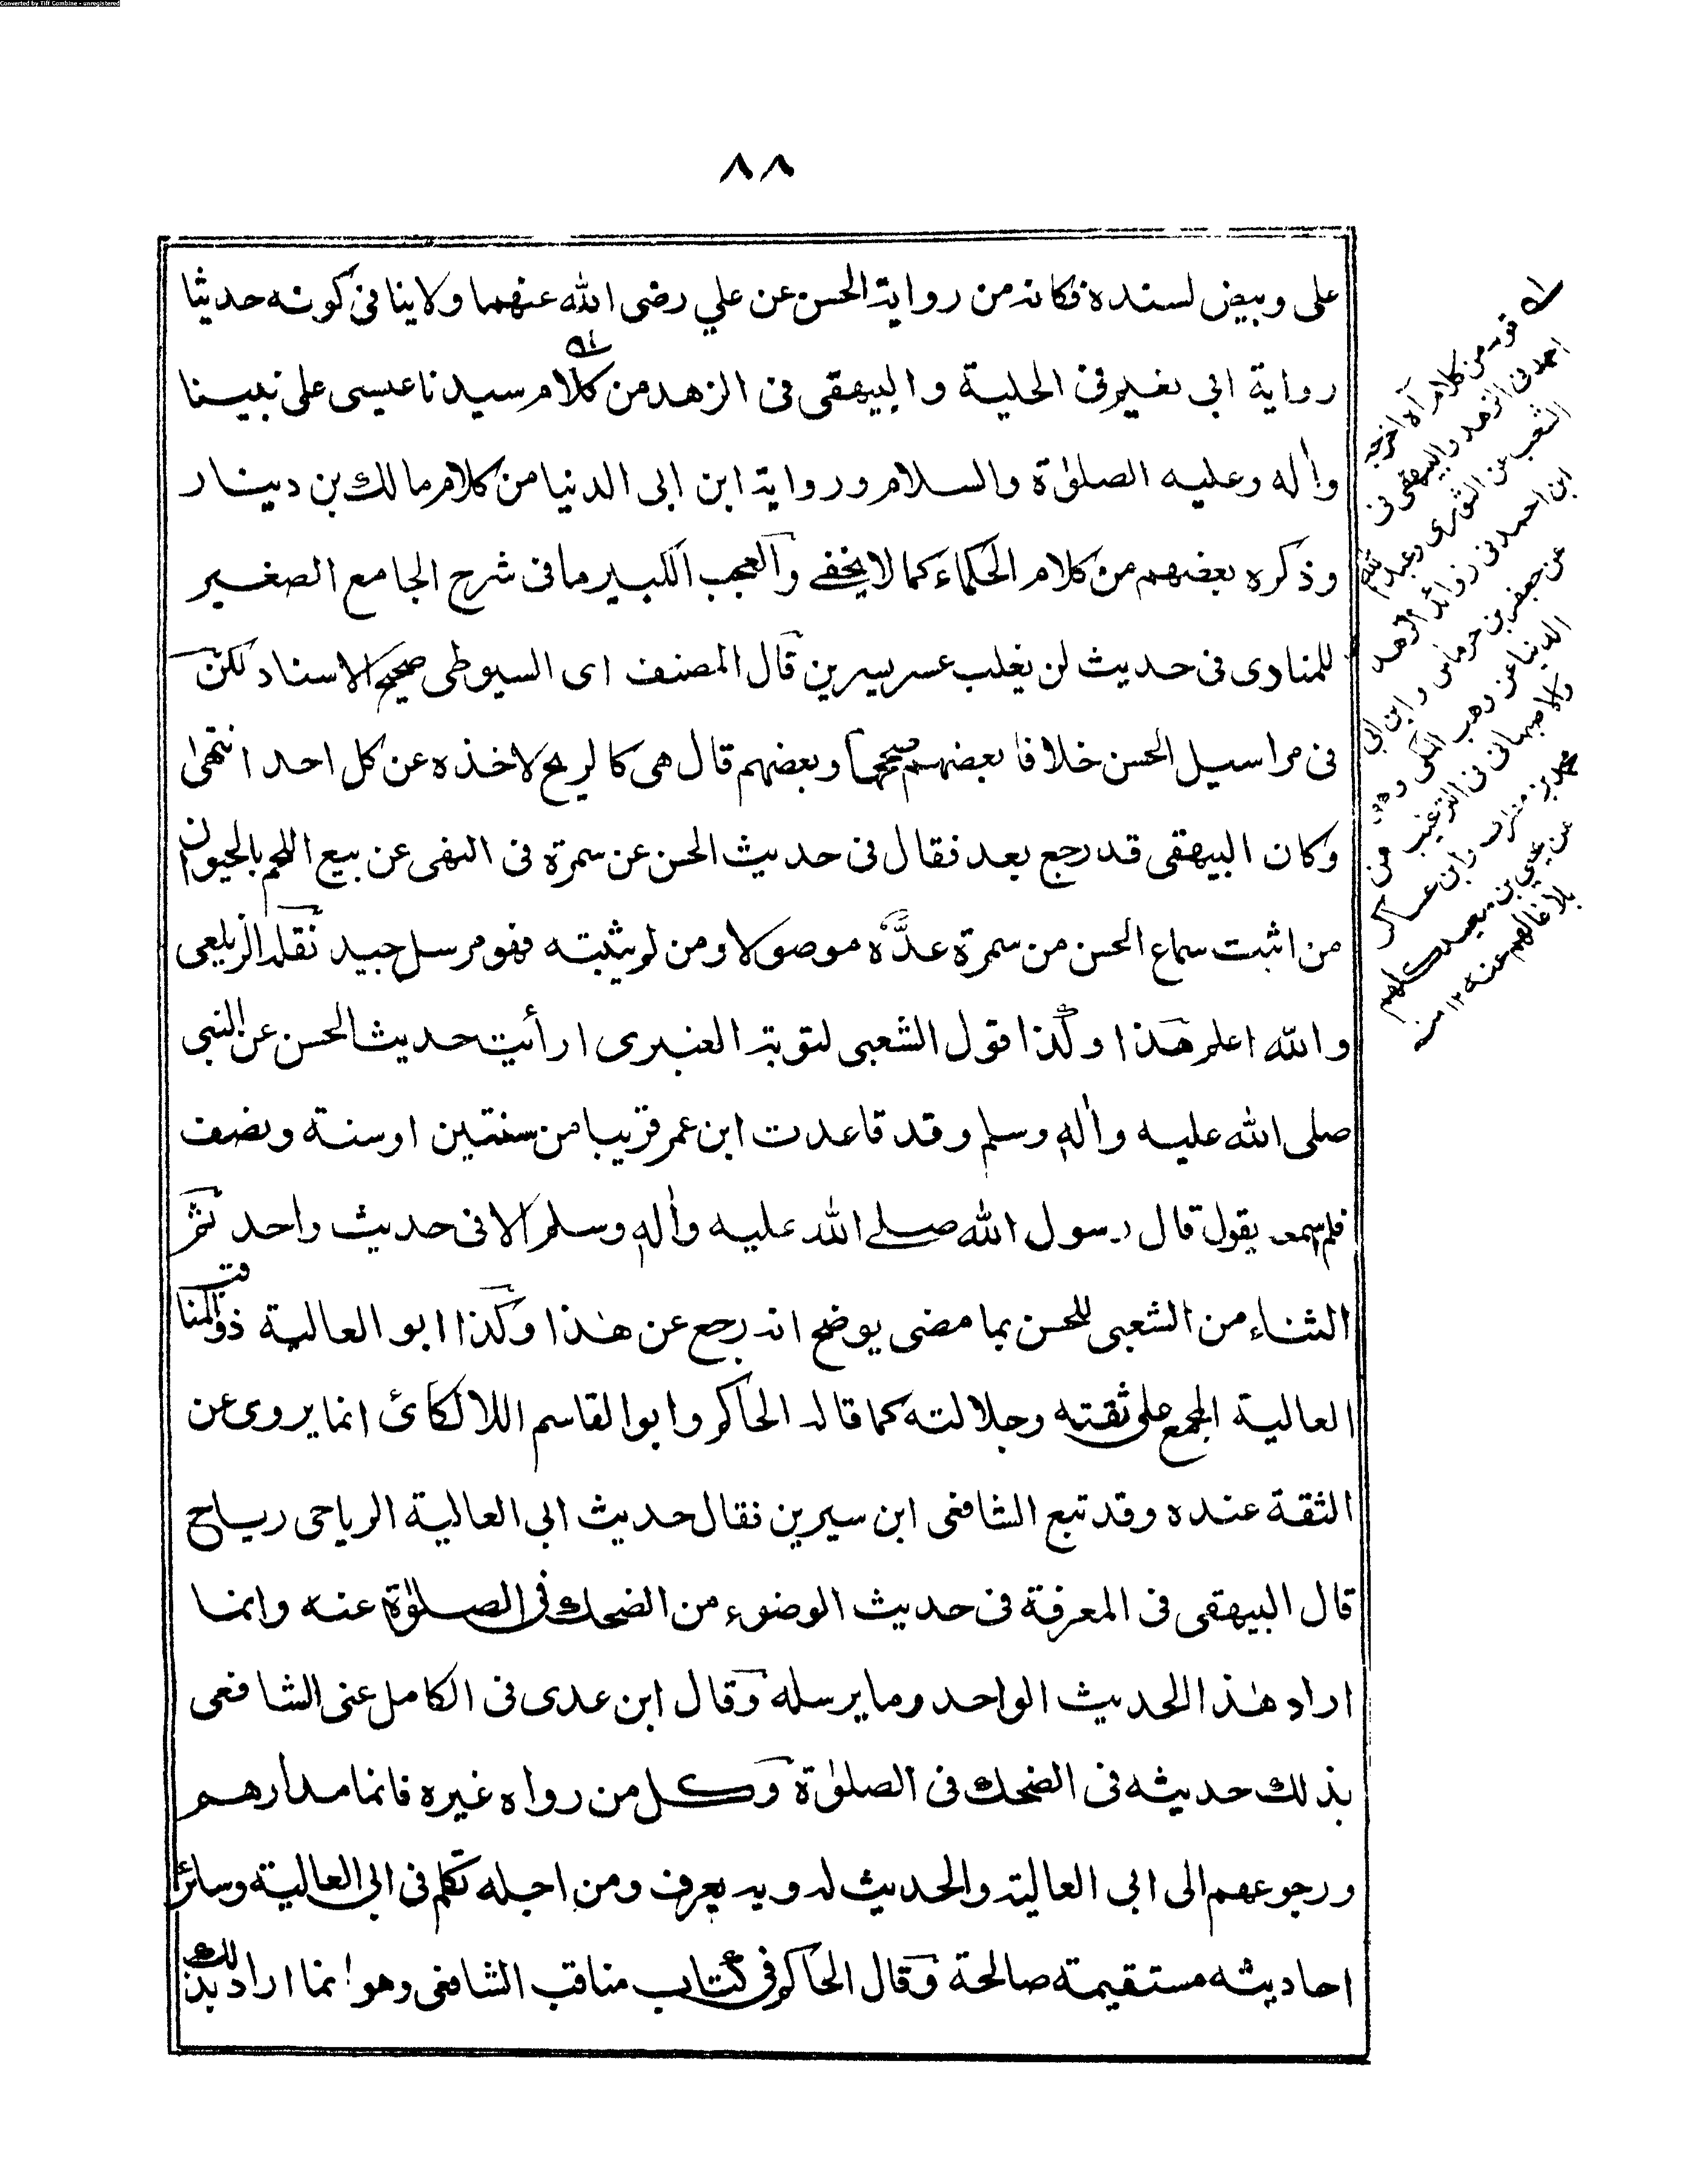 Converted by Tiff Combine - unregistered
٨٨
على وبيض لسنده فكانه من رواية الحسن عن علي رضى الله عنهما ولا ينافى كونه حديثا
رواية ابى نعيم فى الحلية والبيهقى فى الزهد من كلام سيدنا عيسى على نبينا
واٰله وعليه الصلوٰة والسلام ورواية ابن ابى الدنيا من كلام مالك بن دينار
وذكره بعضهم من كلام الحكماء كما لا يخفے والعجب الكبير ما فى شرح الجامع الصغير
للمناوى فى حديث لن يغلب عسر يسرين قال المصنف اى السيوطى صحيح الاسناد لكن
فى مراسيل الحسن خلافا بعضهم صححها وبعضهم قال هى كالريح لاخذه عن كل احد انتهىٰ
وكان البيهقى قد رجع بعد فقال فى حديث الحسن عن سمرة فى النهى عن بيع اللحم بالحيوان
من اثبت سماع الحسن من سمرة عدَّه موصولا ومن لم يثبته فهو مرسل جيد نقله الزيلعى
والله اعلم هذا وكذا قول الشعبى لتوبة العنبرى ارأيت حديث الحسن عن النبى
صلى الله عليه واٰله وسلم وقد قاعدت ابن عمر قريبا من سنتين او سنة ونصف
فلم اسمعه يقول قال رسول الله صلے الله عليه واٰله وسلم الا فى حديث واحد ثم
الثناء من الشعبى للحسن بما مضى يوضح انه رجع عن هٰذا وكذا ابو العالية ذو المناقب
العالية المجمع على ثقته وجلالته كما قاله الحاكم وابو القاسم اللالكائى انما يروى عن
الثقة عنده وقد تبع الشافعى ابن سيرين فقال حديث ابى العالية الرياحى رياح
قال البيهقى فى المعرفة فى حديث الوضوء من الضحك فى الصلوٰة عنه وانما
اراد هٰذا الحديث الواحد وما يرسله وقال ابن عدى فى الكامل عنى الشافعى
بذلك حديثه فى الضحك فى الصلوٰة وكل من رواه غيره فانما مدارهم
ورجوعهم الى ابى العالية والحديث له وبه يعرف ومن اجله تكلم فى ابى العالية وسائر
احاديثه مستقيمة صالحة وقال الحاكم فى كتاب مناقب الشافعى وهو انما اراد بذلك
قوله من كلام اه اخرجه
احمد فى الزهد والبيهقى فى
الشعب عن الثورى وعبد الله
ابن احمد فى زوائد الزهد
عن جعفر بن حرماس وابن ابى
الدنيا عن وهب المكى
والاصبهانى فى الترغيب من
محمد بن مطرف وابن عساكر
عن يحيى بن سعيد كلهم
بلاغا لهم عنه ١٢ منه